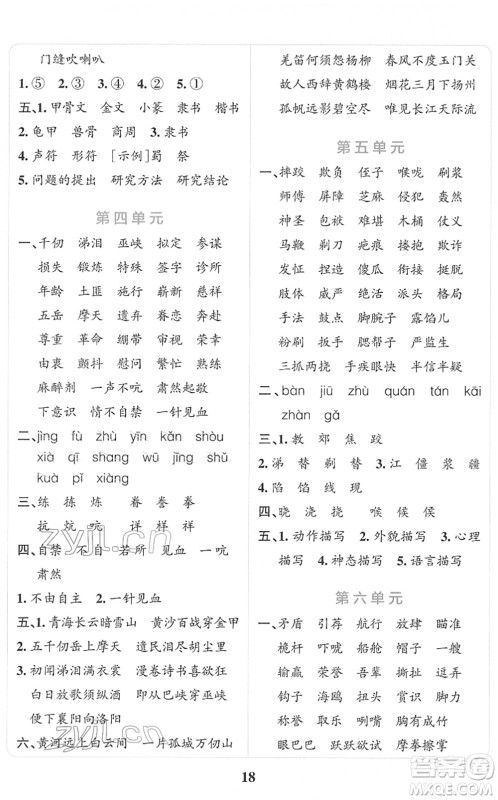 门缝吹喇叭
1. ⑤　2. ③　3. ④　4. ②　5. ①
五、1. 甲骨文　金文　小篆　隶书　楷书
2. 龟甲　兽骨　商周　3. 隶书
4. 声符　形符　[示例]蜀　祭
5. 问题的提出　研究方法　研究结论
第四单元
一、千仞　涕泪　巫峡　拟定　参谋
损失　锻炼　特殊　签字　诊所
年龄　土匪　施行　崭新　慈祥
五岳　摩天　遗弃　眷恋　奔赴
尊重　革命　一绷带　审视　荣幸
由衷　颤抖　慰问　繁忙　熟练
麻醉剂　一声不吭　肃然起敬
下意识　情不自禁　一针见血
二、jìng　fú　zhù　yīn　kǎn　shòu
xià　qì　shang　wū　jīn　zhì
三、练　拣　炼　眷　誊　拳
抗　炕　吭　详　样　祥
四、自禁　不　自若　所　见血　不
肃然
1. 不由自主　2. 一针见血
五、1. 青海长云暗雪山　黄沙百战穿金甲
2. 三千仞岳上摩天　遗民泪尽胡尘里
3. 初闻涕泪满衣裳　漫卷诗书喜欲狂
白日放歌须纵酒　即从巴峡穿巫峡
便下襄阳向洛阳
六、黄河远上白云间　一片孤城万仞山
羌笛何须怨杨柳　春风不度玉门关
故人西辞黄鹤楼　烟花三月下扬州
孤帆远影碧空尽　唯见长江天际流
第五单元
一、摔跤　欺负　侄子　喉咙　刷浆
师傅　屏障　芝麻　疆场　轰然
神圣　包袱　难堪　木桶　仗义
马鞭　剃刀　疤痕　搂抱　欺诈
发怔　捏造　傻瓜　衔接　挺脱
肢体　威严　绝活　派头　格局
手法　鼓点　脚腕子　露馅儿
粉刷　规矩　肥帮子　严监生
三抓两挠　手疾眼快　半信半疑
二、bàn　jiū　zhù　quán　tán　kàn
zhàn　gǎ
三、1. 教　郊　焦　跤
2. 涕　替　剃　替　3. 江　僵　浆　疆
4. 陷　馅　线　现
四、晓　浇　挠　喉　候　侯
五、1. 动作描写　2. 外貌描写　3. 心理
描写　4. 神态描写　5. 语言描写
第六单元
一、矛盾　引荐　航行　放肆　瞄准
桅杆　吓唬　船舱　帽子　艘
输赢　荣誉　吾辈　撕扯　拴住
钩子　海鸥　扭头　咨询　龇牙
称誉　取乐　放肆　桅杆　胆量
眼巴巴　跃跃欲试　摩拳擦掌
18